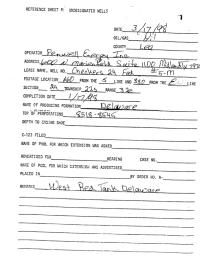 REFERENCE SHEET FOR UNDESIGNATED WELLS
1
DATE 3/17/98
OIL/GAS Oil
COUNTY Lea
OPERATOR Penwell Energy Inc.
ADDRESS 600 N Marienfeld Suite 1100 Midland Tx
LEASE NAME, WELL NO. Checkers 24 Fed #5-M
FOOTAGE LOCATION 660 FROM THE S LINE AND 330 FROM THE LINE
SECTION 24 TOWNSHIP 22S RANGE 32E
COMPLETION DATE 1/7/98
NAME OF PRODUCING FORMATION Delaware
TOP OF PERFORATIONS 8518-8545
DEPTH TO CASING SHOE
C-123 FILED
NAME OF POOL FOR WHICH EXTENSION WAS ASKED
ADVERTISED FOR HEARING CASE NO.
NAME OF POOL FOR WHICH EXTENSION WAS ADVERTISED
PLACED IN BY ORDER NO. R-
West Red Tank Delaware